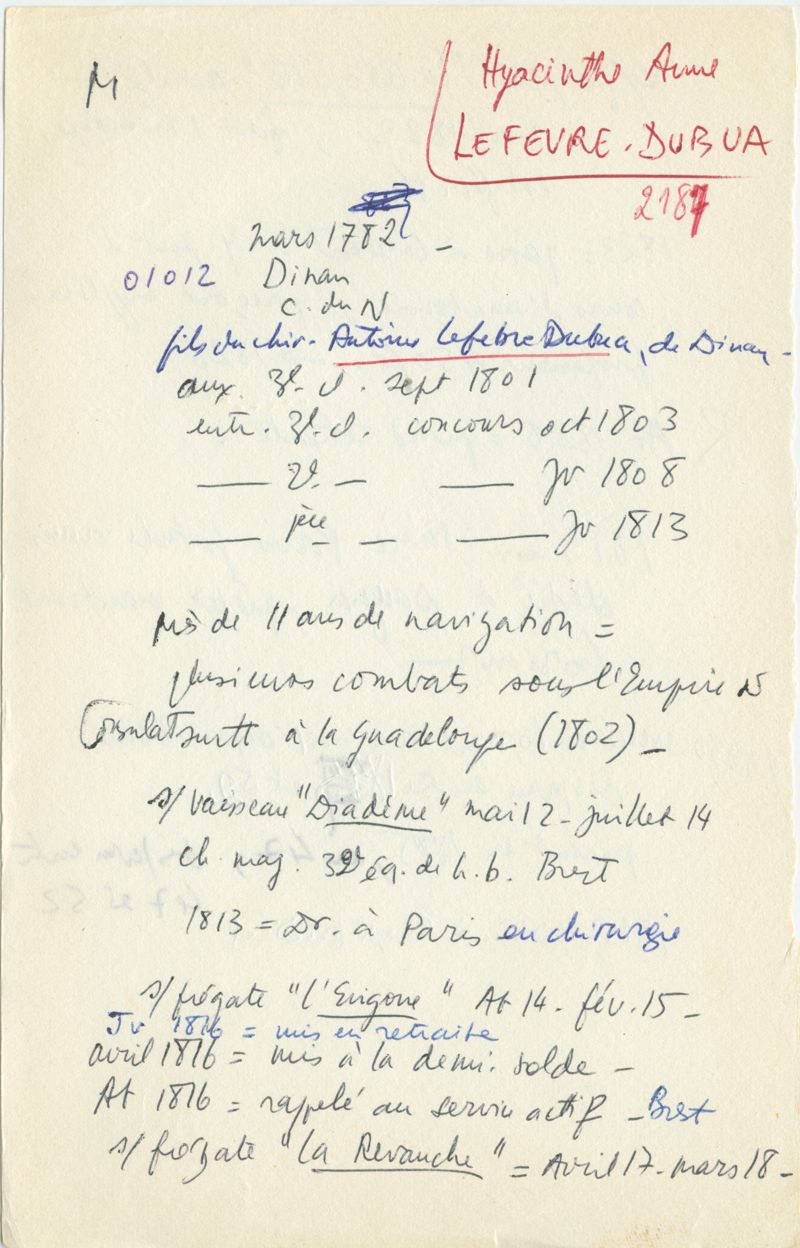 M
Hyacinthe Anne
LEFEVRE-DUBUA
2187
mars 1782 -
01012 Dinan
C. du N
fils du chir. Antoine Lefebre Dubua, de Dinan -
aux. 3è. cl. sept 1801
entr. 3è. cl. concours oct 1803
— 2è. — — Jv 1808
— 1ère — — Jv 1813
près de 11 ans de navigation =
plusieurs combats sous l'Empire &
Consulat surtt à la Guadeloupe (1802) -
s/ vaisseau "Diadème" mai 12 - juillet 14
ch. maj. 32è éq. de h. b. Brest
1813 = Dr. à Paris en chirurgie
s/ frégate "l'Erigone" At 14 - fév. 15 -
Jv 1816 = mis en retraite
avril 1816 = mis à la demi. solde -
At 1816 = rappelé au service actif - Brest
s/ frégate "la Revanche" = Avril 17 - mars 18 -